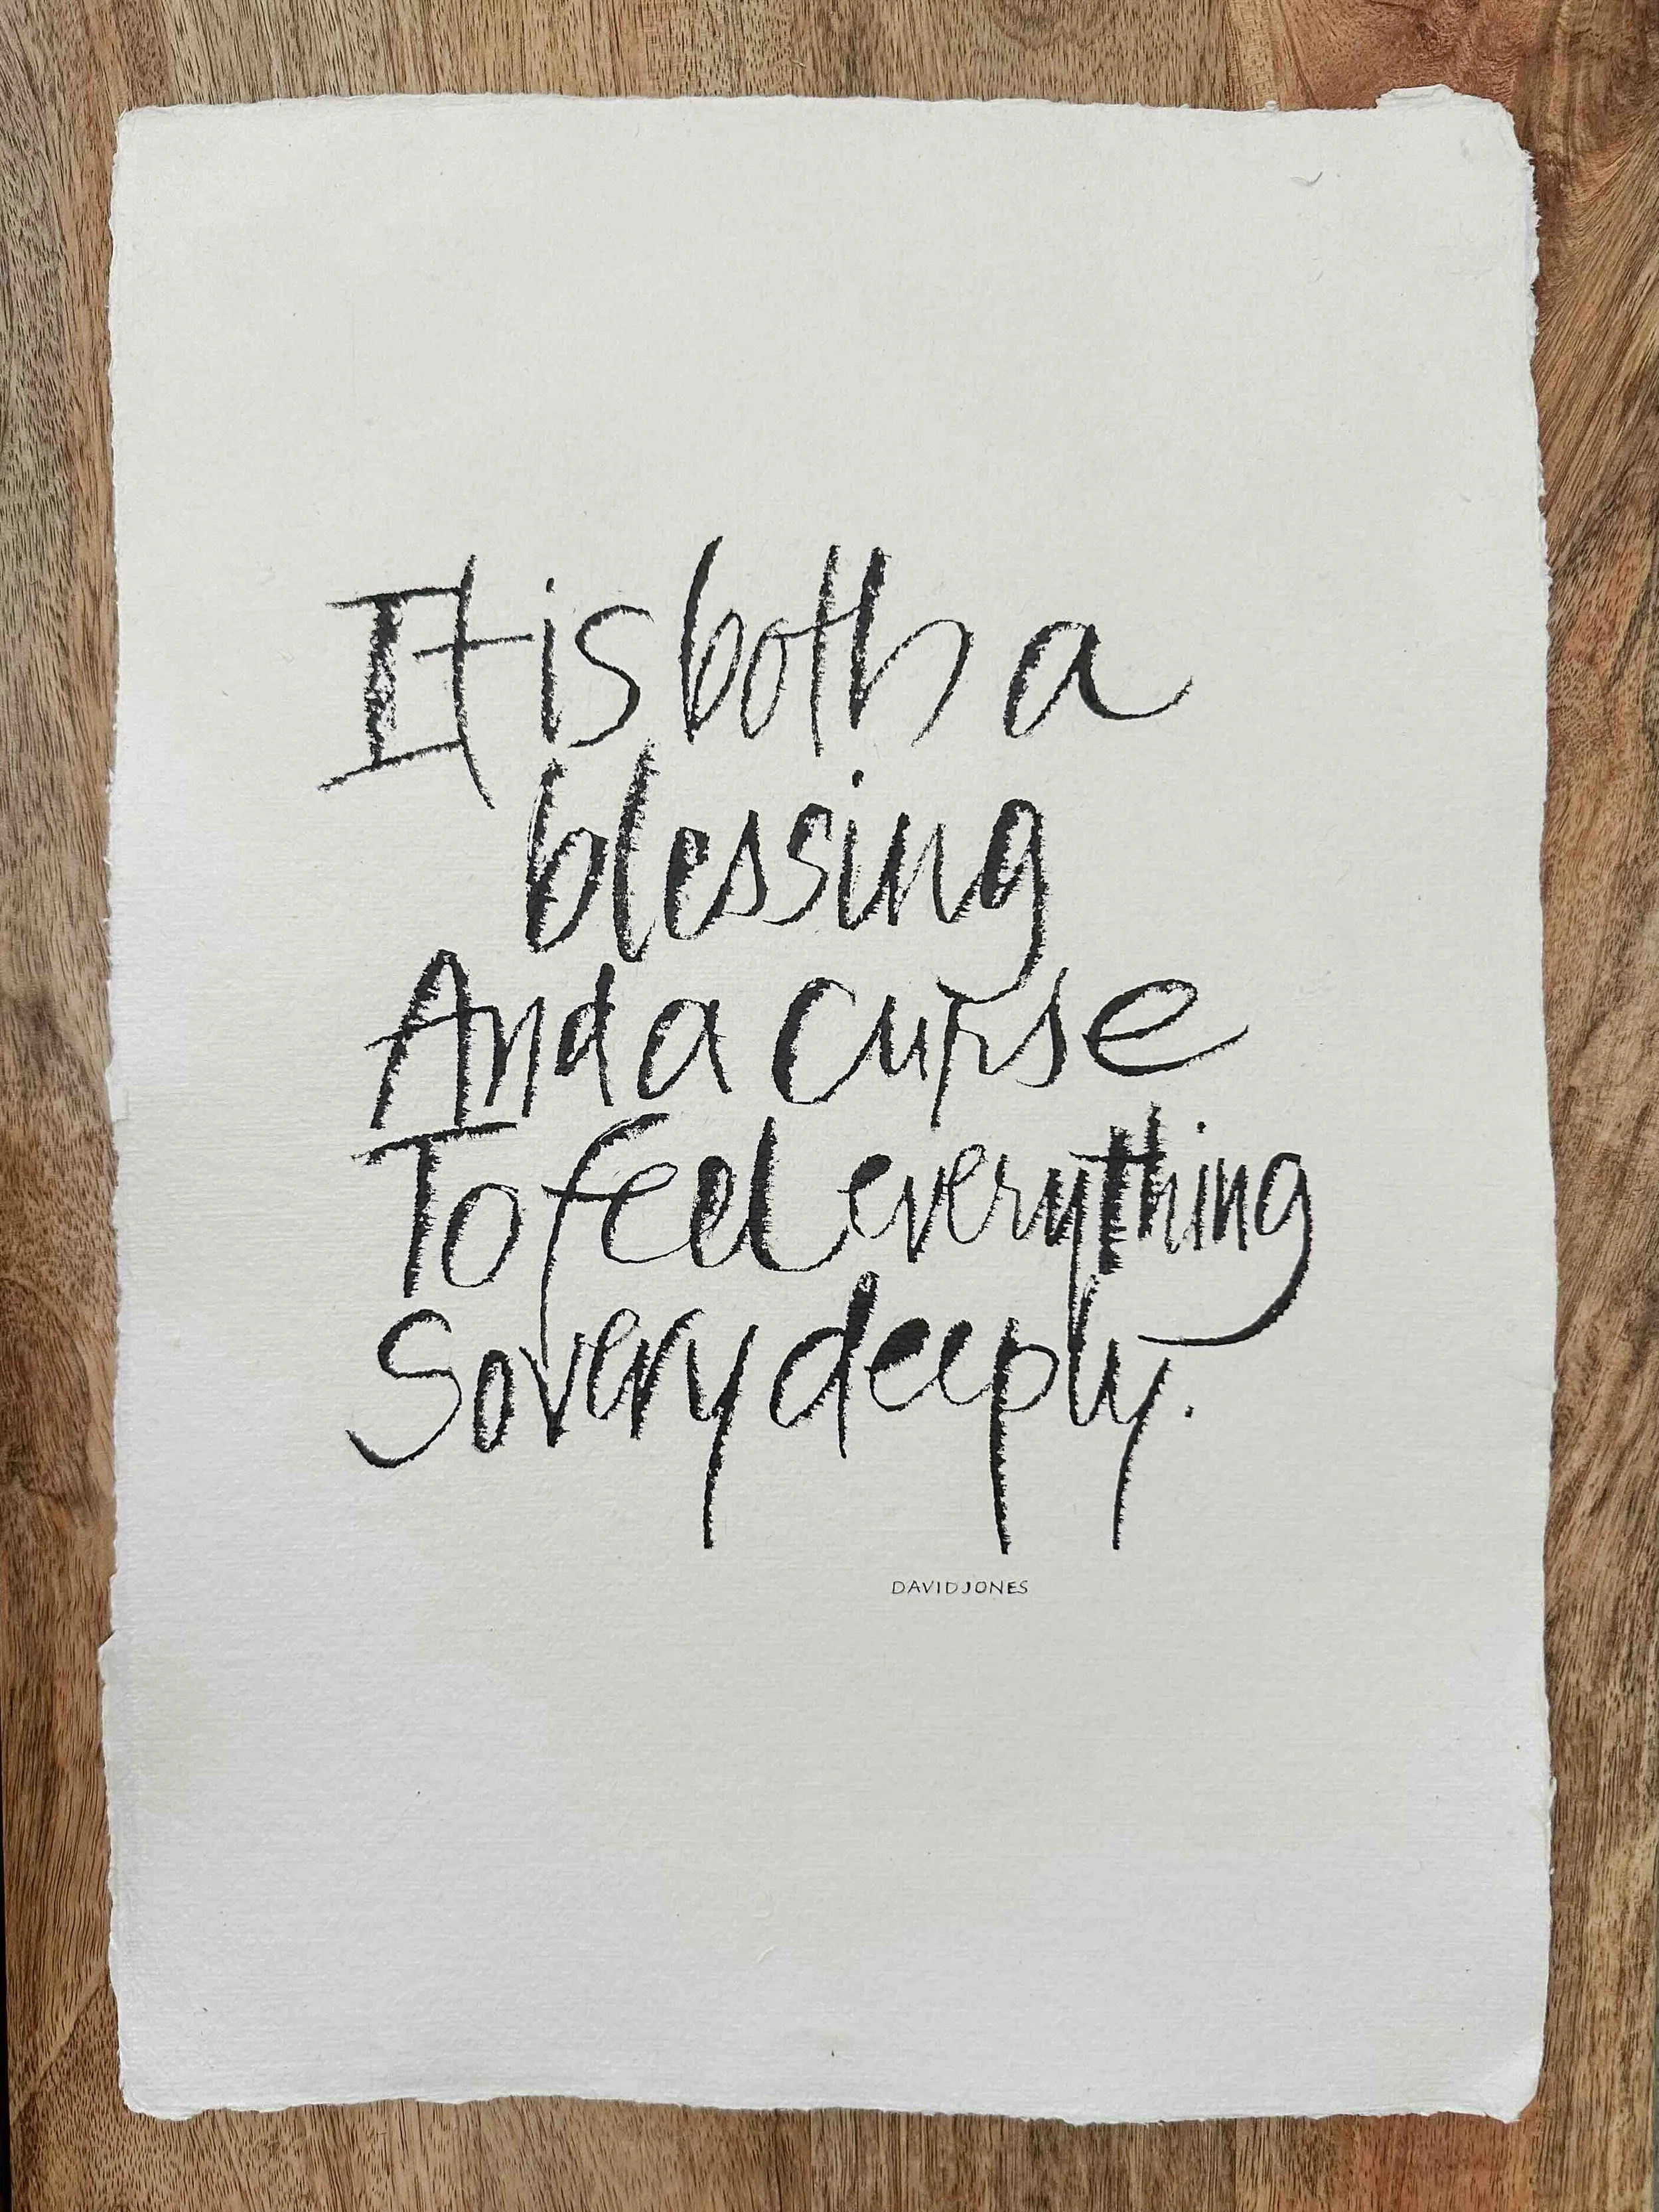 It is both a
blessing
And a curse
To feel everything
So very deeply.
DAVID JONES